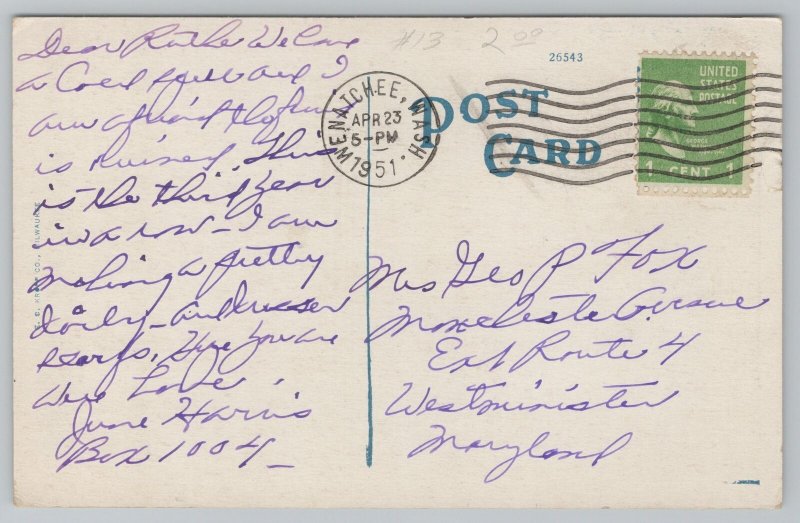 Dear Ruthe We have
a Cold spell and I
am afraid the fruit
is ruined. This
is the third year
in a row - I am
making a pretty
doily - and dresser
scarfs. Hope you are
Well Love,
June Harris
Box 1004 -
#13 2.00
26543
WENATCHEE, WASH.
APR 23
5-PM
1951
POST
CARD
UNITED
STATES
POSTAGE
GEORGE
WASHINGTON
1 CENT 1
Mrs Geo P Fox
Manchester Avenue
Ext Route 4
Westminister
Maryland
E. C. KROPP CO., MILWAUKEE